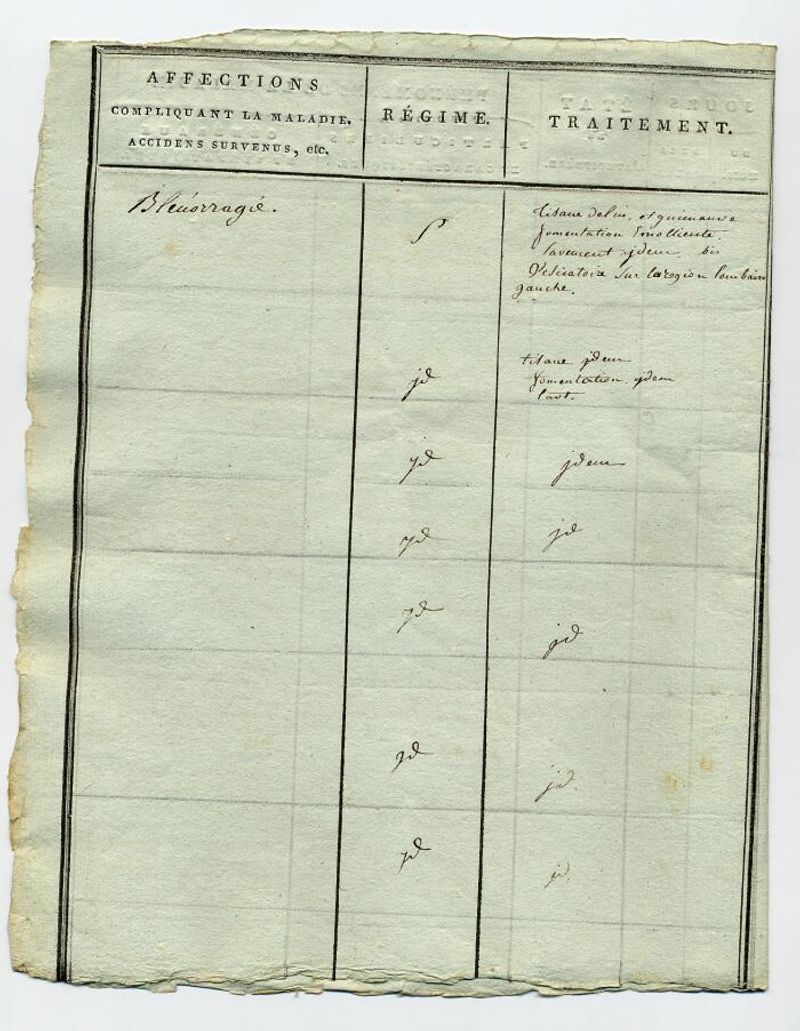 AFFECTIONS
COMPLIQUANT LA MALADIE,
ACCIDENS SURVENUS, etc.
RÉGIME.
TRAITEMENT.
Blénorragié.
S
tisane de lin, et guimauve
fomentation Emolliente.
lavement jdem bis
Vesicatoire sur la region lombaire
gauche.
jd
tisane jdem
fomentation jdem
lavt.
jd
jdem
jd
jd
jd
jd
jd
jd.
jd
jd.